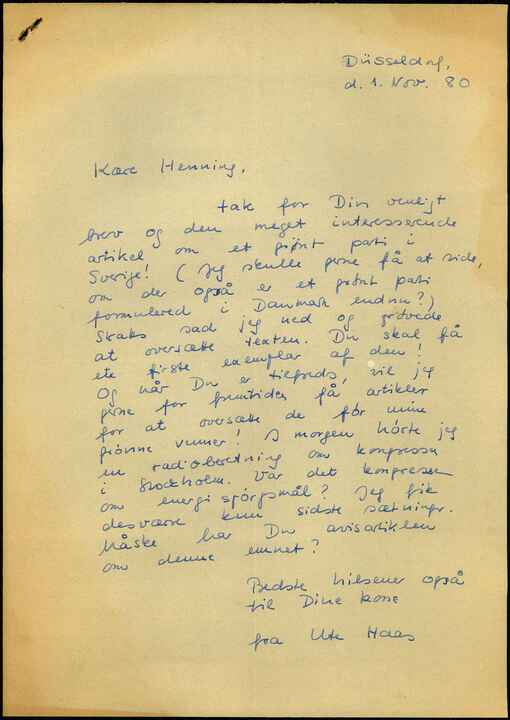 Düsseldorf,
d. 1. Nov. 80
Kære Henning,
tak for Din venligt
brev og den meget interesserende
artikel om et grønt parti i
Sverige! (Jeg skulle gerne få at vide,
om der også er et grønt parti
formulered i Danmark endnu?)
Skaks sad jeg ned og prøvede
at oversætte texten. Du skal få
ete første exemplar af den!
Og når Du er tilfreds, vil jeg
gerne for fremtiden få artikler
for at oversætte de for mine
grønne venner! I morgen hørte jeg
en radioberetning om kongressen
i Stockholm. Var det kongressen
om energi spörgsmål? Jeg fik
desværre kun sidste sætninger.
Måske har Du avisartiklen
om denne emnet?
Bedste hilsener også
til Dine kone
fra Ute Haas